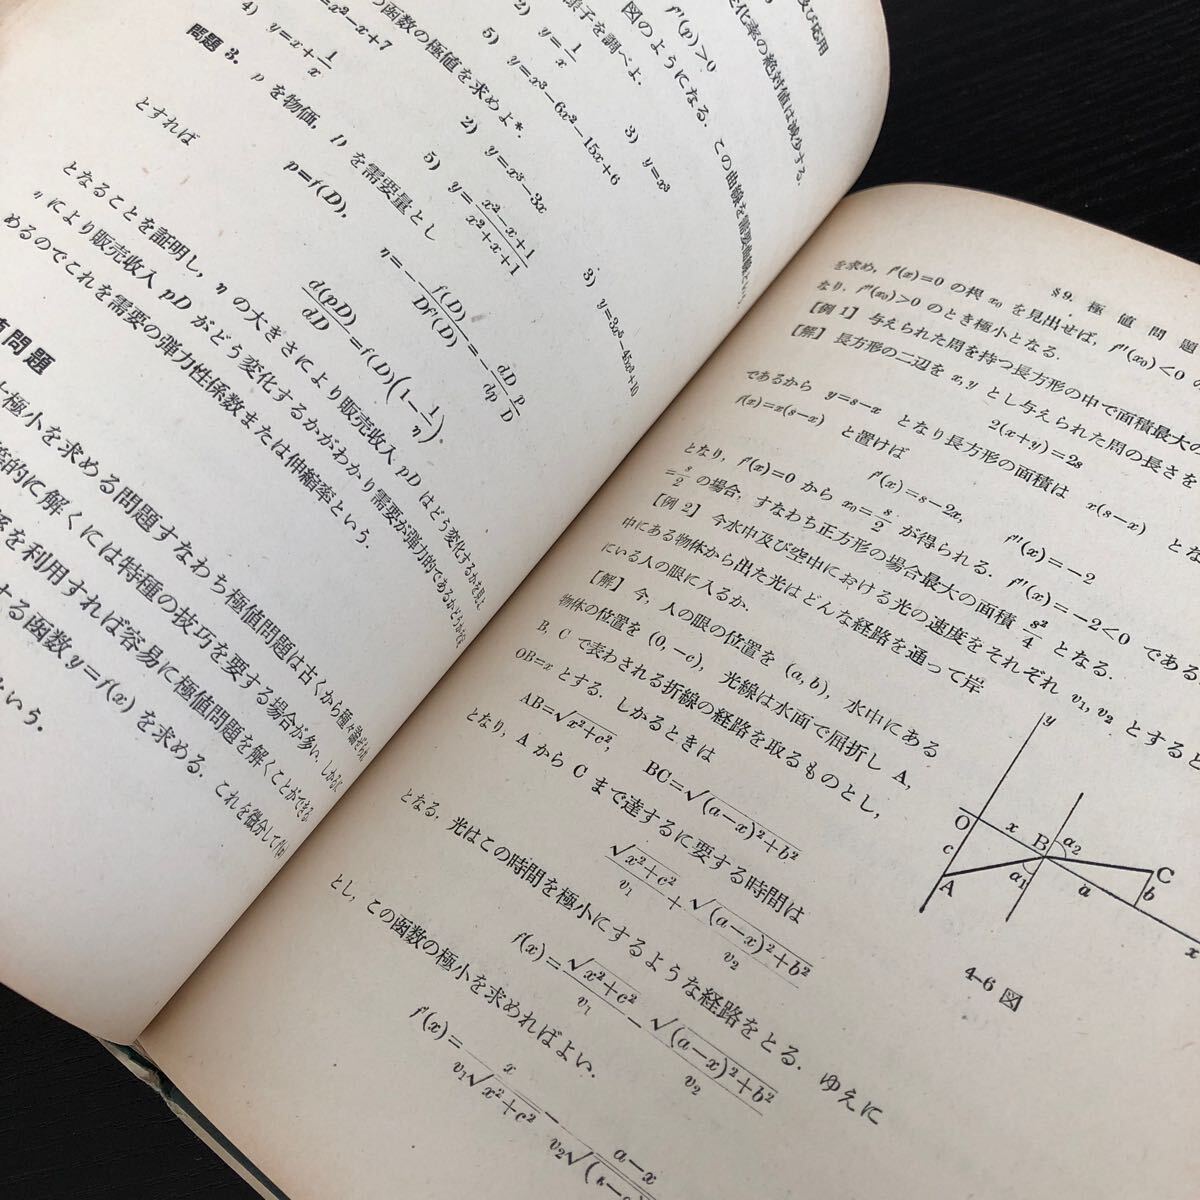 及び応用
変化率の絶対値は減少する.
f''(p)>0
図のようになる. この曲線を需要曲線という.
様子を調べよ.
2) y=1/x
3) y=x³
5) y=x³−6x²−15x+6
の函数の極値を求めよ*.
=x²−x+7
2) y=x³−3x
3) y=3x⁵−45x³+10
4) y=x+1/x
5) y=(x²−x+1)/(x²+x+1)
問題 3. p を物価, D を需要量とし
p=f(D),
η=−f(D)/Df'(D)=−dD/dp p/D
とすれば
d(pD)/dD=f(D)(1−1/η).
となることを証明し, η の大きさにより販売収入 pD はどう変化するかを見よ.
η により販売収入 pD がどう変化するかがわかり需要が弾力的であるかどうか
めるのでこれを需要の弾力性係数または伸縮率という.
値問題
大極小を求める問題すなわち極値問題は古くから種々
等的に解くには特種の技巧を要する場合が多い. しかるに
係を利用すれば容易に極値問題を解くことができる.
する函数 y=f(x) を求める. これを微分して f'(x)
という.
§9. 極値問題
を求め, f'(x)=0 の根 x₀ を見出せば, f''(x₀)<0 の
なり. f''(x₀)>0 のとき極小となる.
[例 1] 与えられた周を持つ長方形の中で面積最大の
[解] 長方形の二辺を x, y とし与えられた周の長さを
2(x+y)=2s
であるから y=s−x となり長方形の面積は x(s−x) とな
f(x)=x(s−x) と置けば
f'(x)=s−2x, f''(x)=−2
となり, f'(x)=0 から x₀=s/2 が得られる. f''(x)=−2<0 である
=s/2 の場合, すなわち正方形の場合最大の面積 s²/4 となる.
[例 2] 今水中及び空中における光の速度をそれぞれ v₁, v₂ とすると
中にある物体から出た光はどんな経路を通って岸
にいる人の眼に入るか.
[解] 今, 人の眼の位置を (a, b), 水中にある
物体の位置を (0, −c), 光線は水面で屈折し A,
B, C で表わされる折線の経路を取るものとし,
OB=x とする. しかるときは
AB=√(x²+c²), BC=√((a−x)²+b²)
となり, A から C まで達するに要する時間は
√(x²+c²)/v₁+√((a−x)²+b²)/v₂
となる. 光はこの時間を極小にするような経路をとる. ゆえに
f(x)=√(x²+c²)/v₁−√((a−x)²+b²)/v₂
とし, この函数の極小を求めればよい.
f'(x)=x/(v₁√(x²+c²))−(a−x)/(v₂√(
y
O
x
B
α₂
c
A
α₁
a
C
b
x
4–6 図